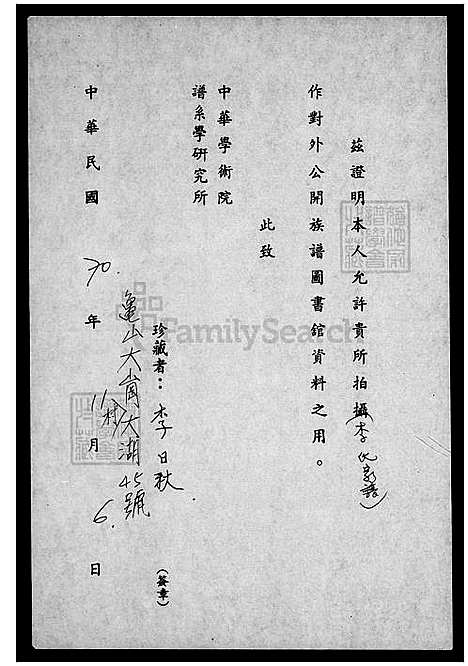 茲證明本人允許貴所拍攝(李氏家譜)
作對外公開族譜圖書館資料之用。
此致
中華學術院
譜系學研究所
珍藏者:李日秋
(簽章)
龜山大崗村大湖45號
中華民國70.年11月6.日
FamilySearch